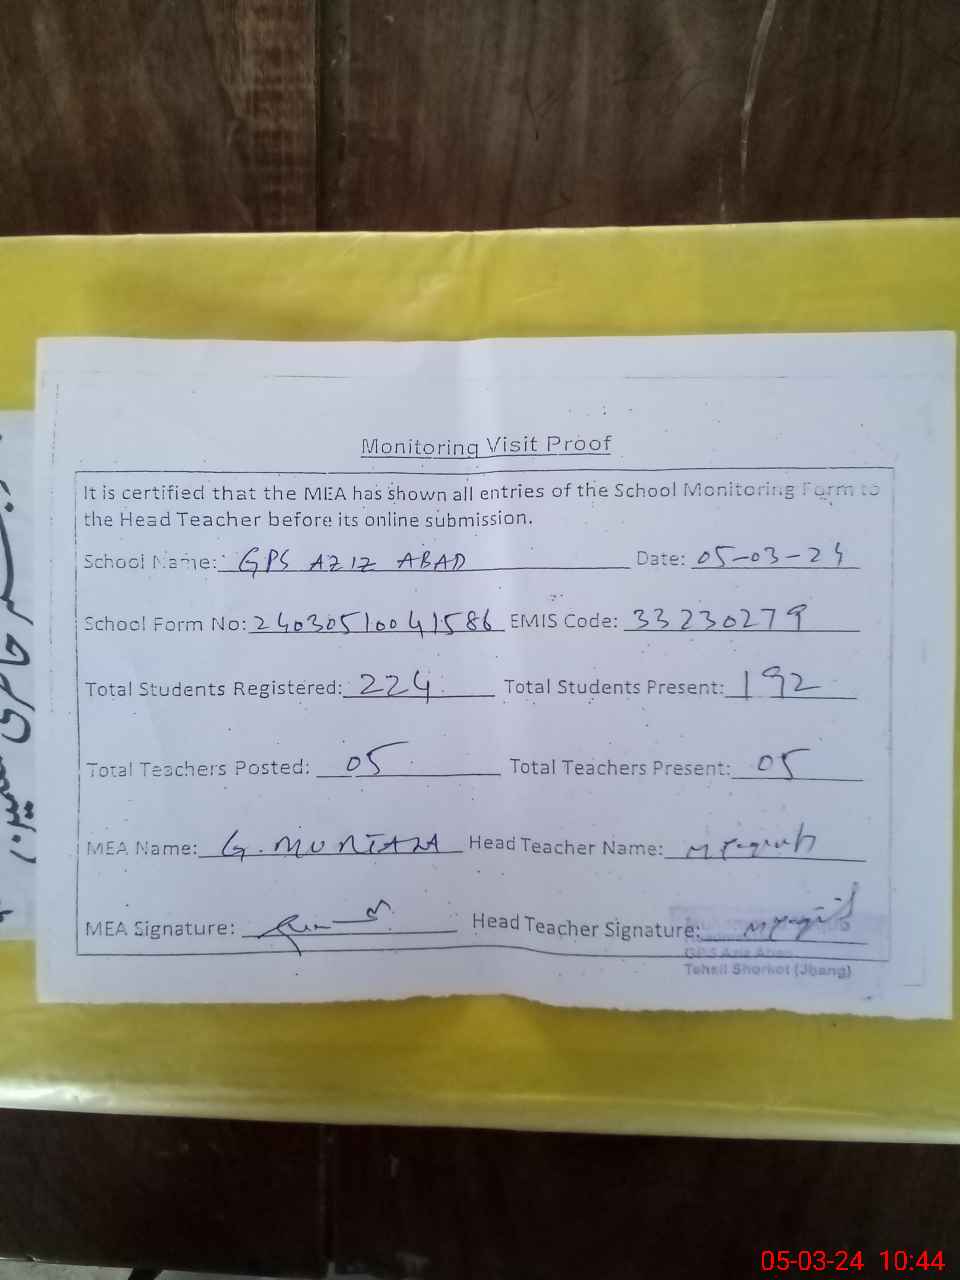 Monitoring Visit Proof
It is certified that the MEA has shown all entries of the School Monitoring Form to
the Head Teacher before its online submission.
School Name: GPS AZIZ ABAD Date: 05-03-24
School Form No: 24030510041586 EMIS Code: 33230279
Total Students Registered: 224 Total Students Present: 192
Total Teachers Posted: 05 Total Teachers Present: 05
MEA Name: G. MUNTAZA Head Teacher Name: M
MEA Signature: Head Teacher Signature:
GPS Aziz Abad
Tehsil Shorkot (Jhang)
05-03-24 10:44